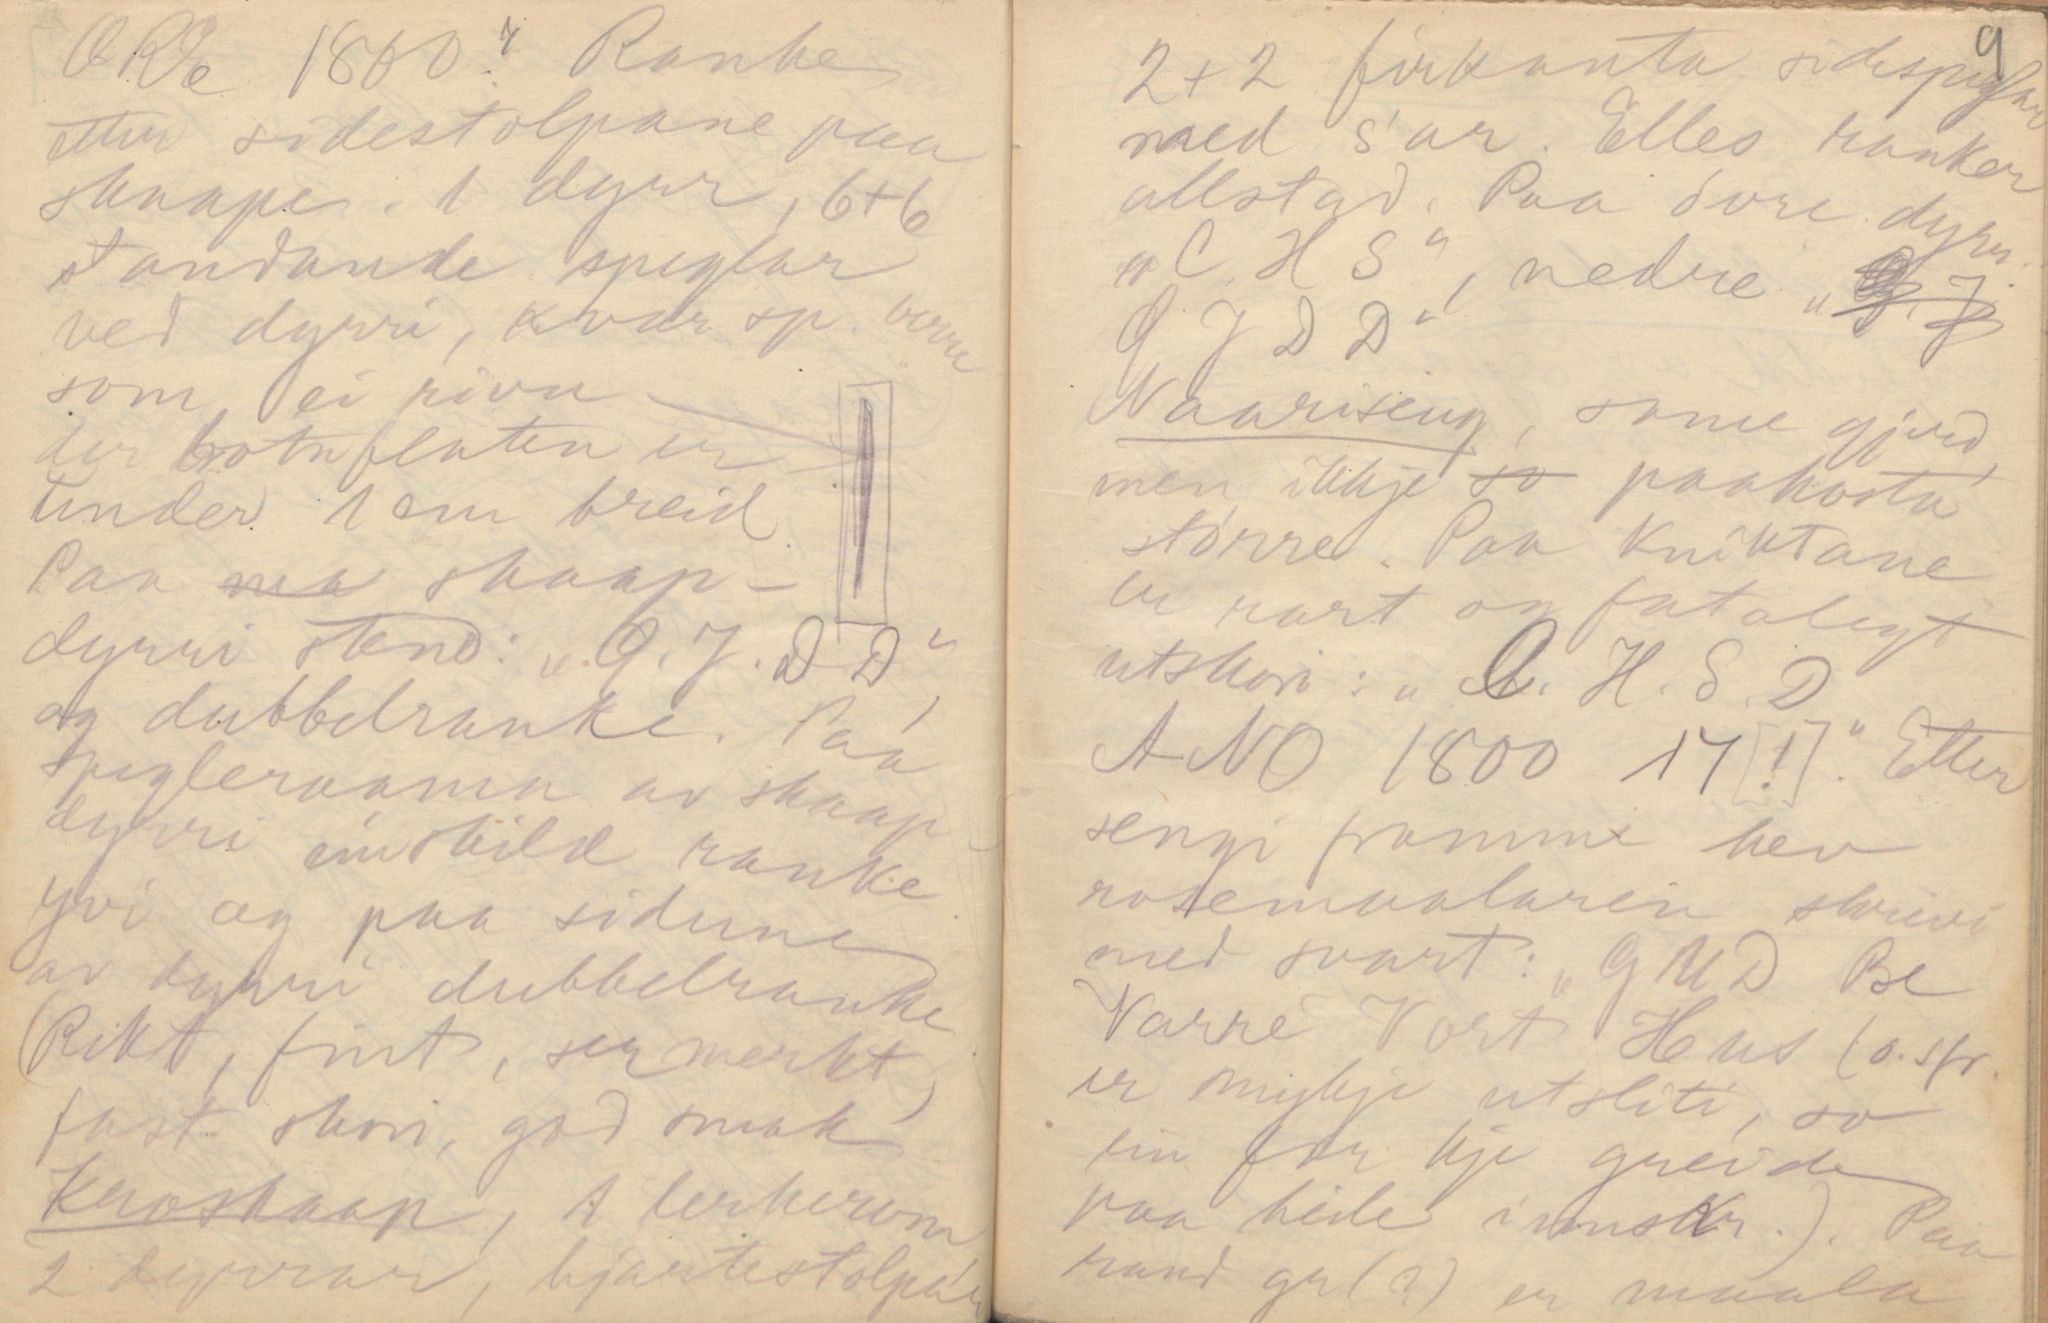 1800." Ranke
etter sidestolpane paa
skaape. 1 dyrr, 6+6
standande speglar
ved dyrri, kvar sp. verre
som ei rivu
der botnflaten er
under 1 cm breid.
Paa skaap-
dyrri stend: „G. J. D D"
og dubbelranke. Paa
spegleraama av skaap-
dyrri einskild ranke
yvi og paa sidune
av dyrri dubbelranke
(Rikt, fint, sermerkt)
fast skori, god smak
Kroskaap, 1 lerkerom
2 dyrrar, hjartestolpar
9
2+2 firkanta sidespeglar
med s'ar. Elles ranker
allstad. Paa övre dyrr
„C H S", nedre „G. J.
G J D D"
Naariseng, same gjerd
men ikkje so paakosta
större. Paa Kniktane
er rart og fatalegt
utskori: „A. H. S. D
ANO 1800 17[!]." Etter
sengi framme hev
rosemaalaren skrivi
med svart: „GUD Be
Varre Vort Hus (o. sfr.
er mykje utsliti, so
ein fær kje greide
paa heile innskr.). Paa
rand gr(?) er maala